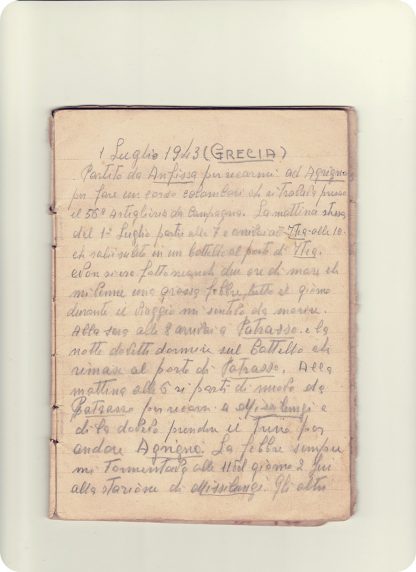 1 Luglio 1943 (GRECIA)
Partito da Anfissa per recarmi ad Agrigno
per fare un corso colombari che si trova presso
il 56° Artiglieria da Campagna. La mattina stessa
del 1° Luglio partii alle 7 e arrivai a Ytea alle 10
e salii in un battello al porto di Ytea.
Non avevo fatto neanche due ore di mare che
mi venne una grossa febbre, tutto il giorno
durante il viaggio mi sentivo da morire.
Alla sera alle 2 arrivai a Patrasso. e la
notte dovetti dormire sul Battello che
rimase al porto di Patrasso. Alla
mattina alle 6 si partì di nuovo da
Patrasso per recarmi a Missilungi e
di là dovevo prendere il treno per
andare Agrigno. La febbre sempre
mi tormentava alle 11 del giorno 2 fui
alla stazione di Missilungi. Gli altri